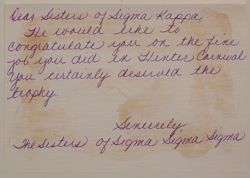 Dear Sisters of Sigma Kappa,
We would like to
congratulate you on the fine
job you did in Winter Carnival
You certainly deserved the
trophy.
Sincerely
The Sisters of Sigma Sigma Sigma